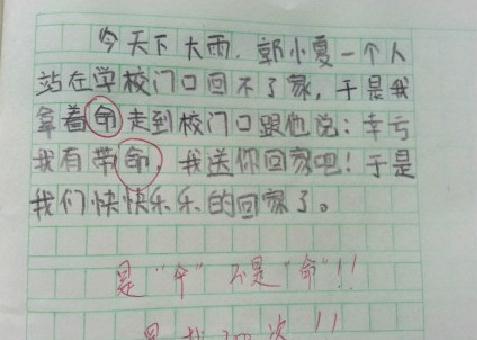 今天下大雨,郭小夏一个人
站在学校门口回不了家,于是我
拿着命走到校门口跟他说:幸亏
我有带命,我送你回家吧!于是
我们快快乐乐的回家了。
是"伞"不是"命"!!
次!!